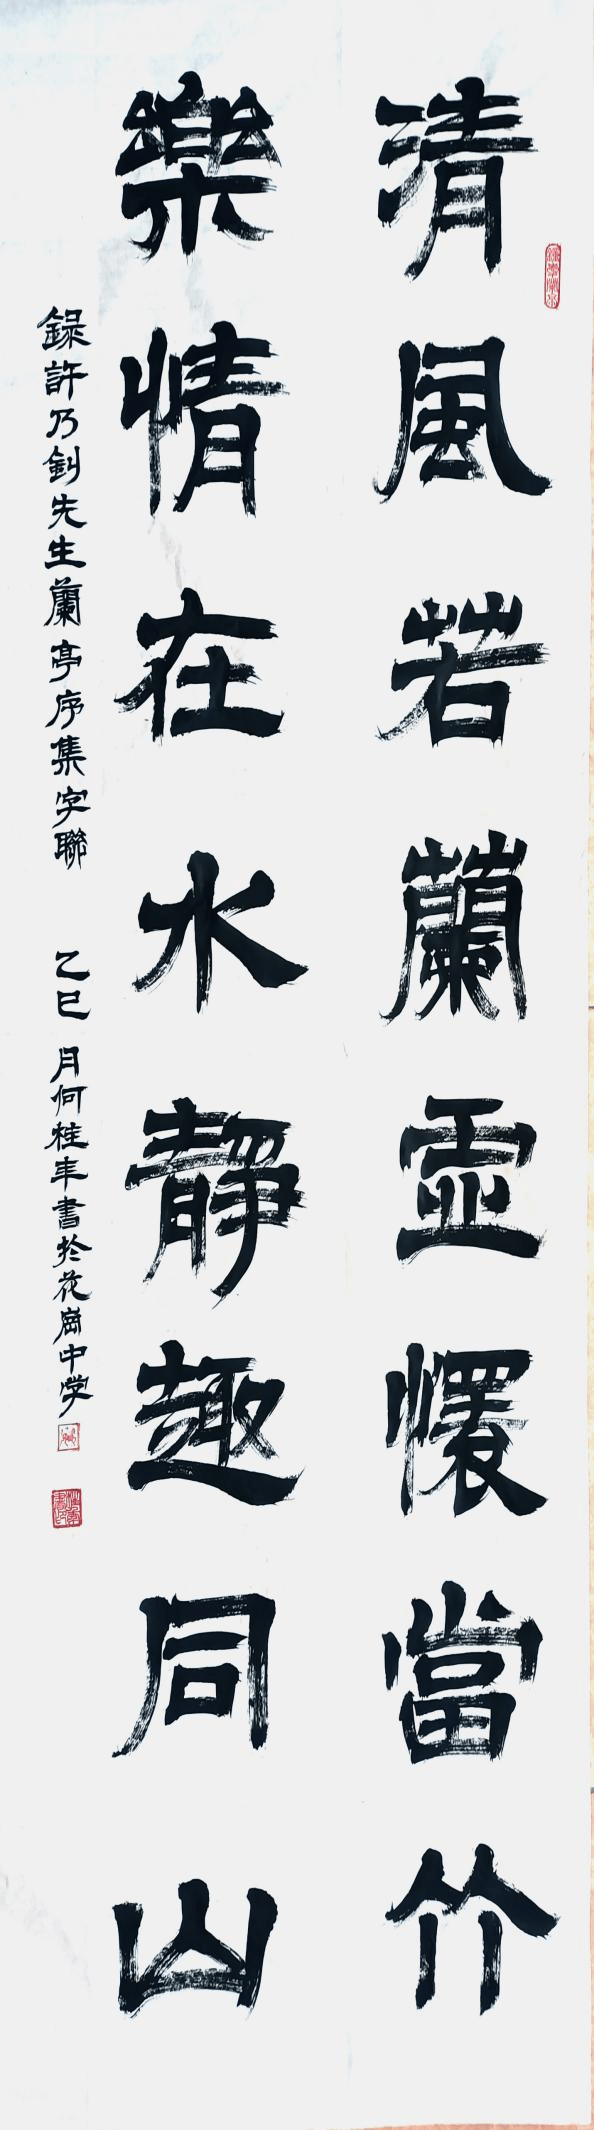 清風若蘭虛懷當竹
樂情在水靜趣同山
錄許乃釗先生蘭亭序集字聯 乙巳 月何桂年書於花崗中学